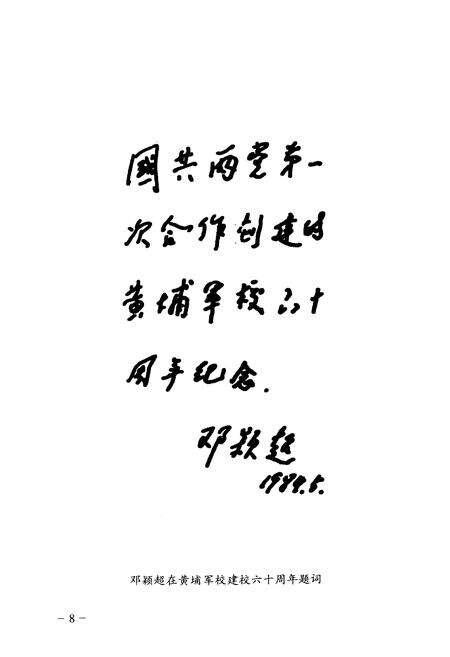 國共两党第一
次合作创建的
黄埔军校六十
周年纪念.
邓颖超
1984.5.
邓颖超在黄埔军校建校六十周年题词
- 8 -